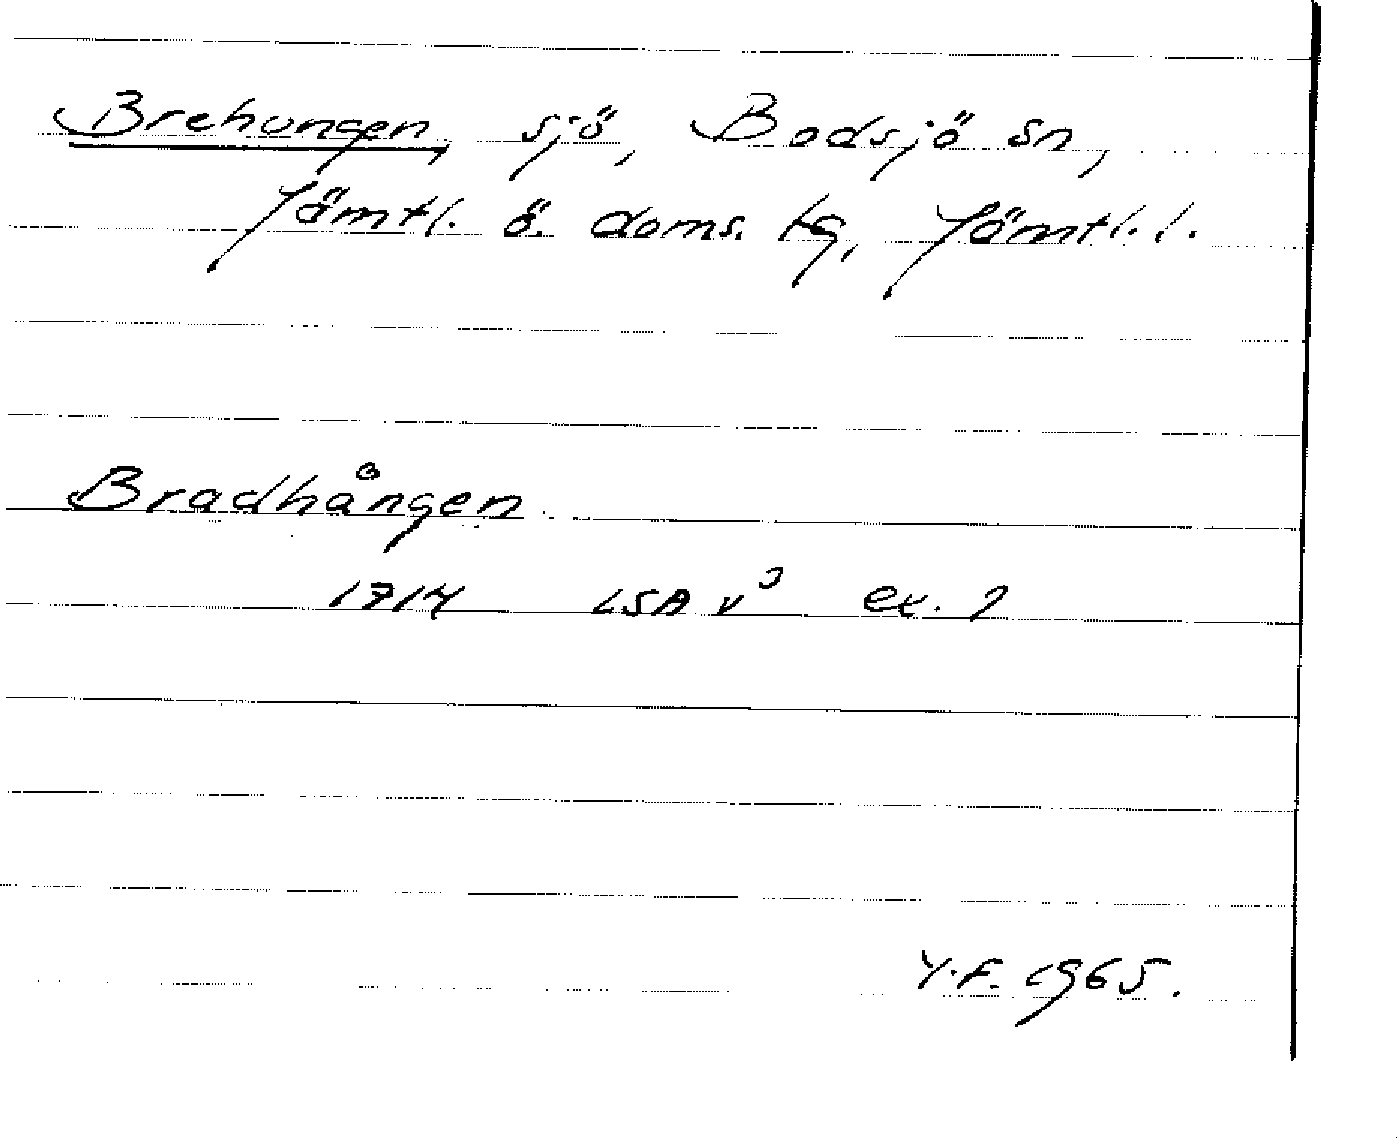 Brehungen, sjö, Bodsjö sn,
Jämtl. ö. doms. tg, Jämtl. l.
Bradhången
1714 LSA v³ ex. 2
Y.F. 1965.